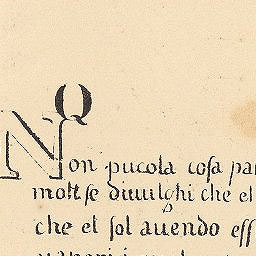 Q
Non piccola cosa par
moltse diuulghi che el
che el sol auendo eff